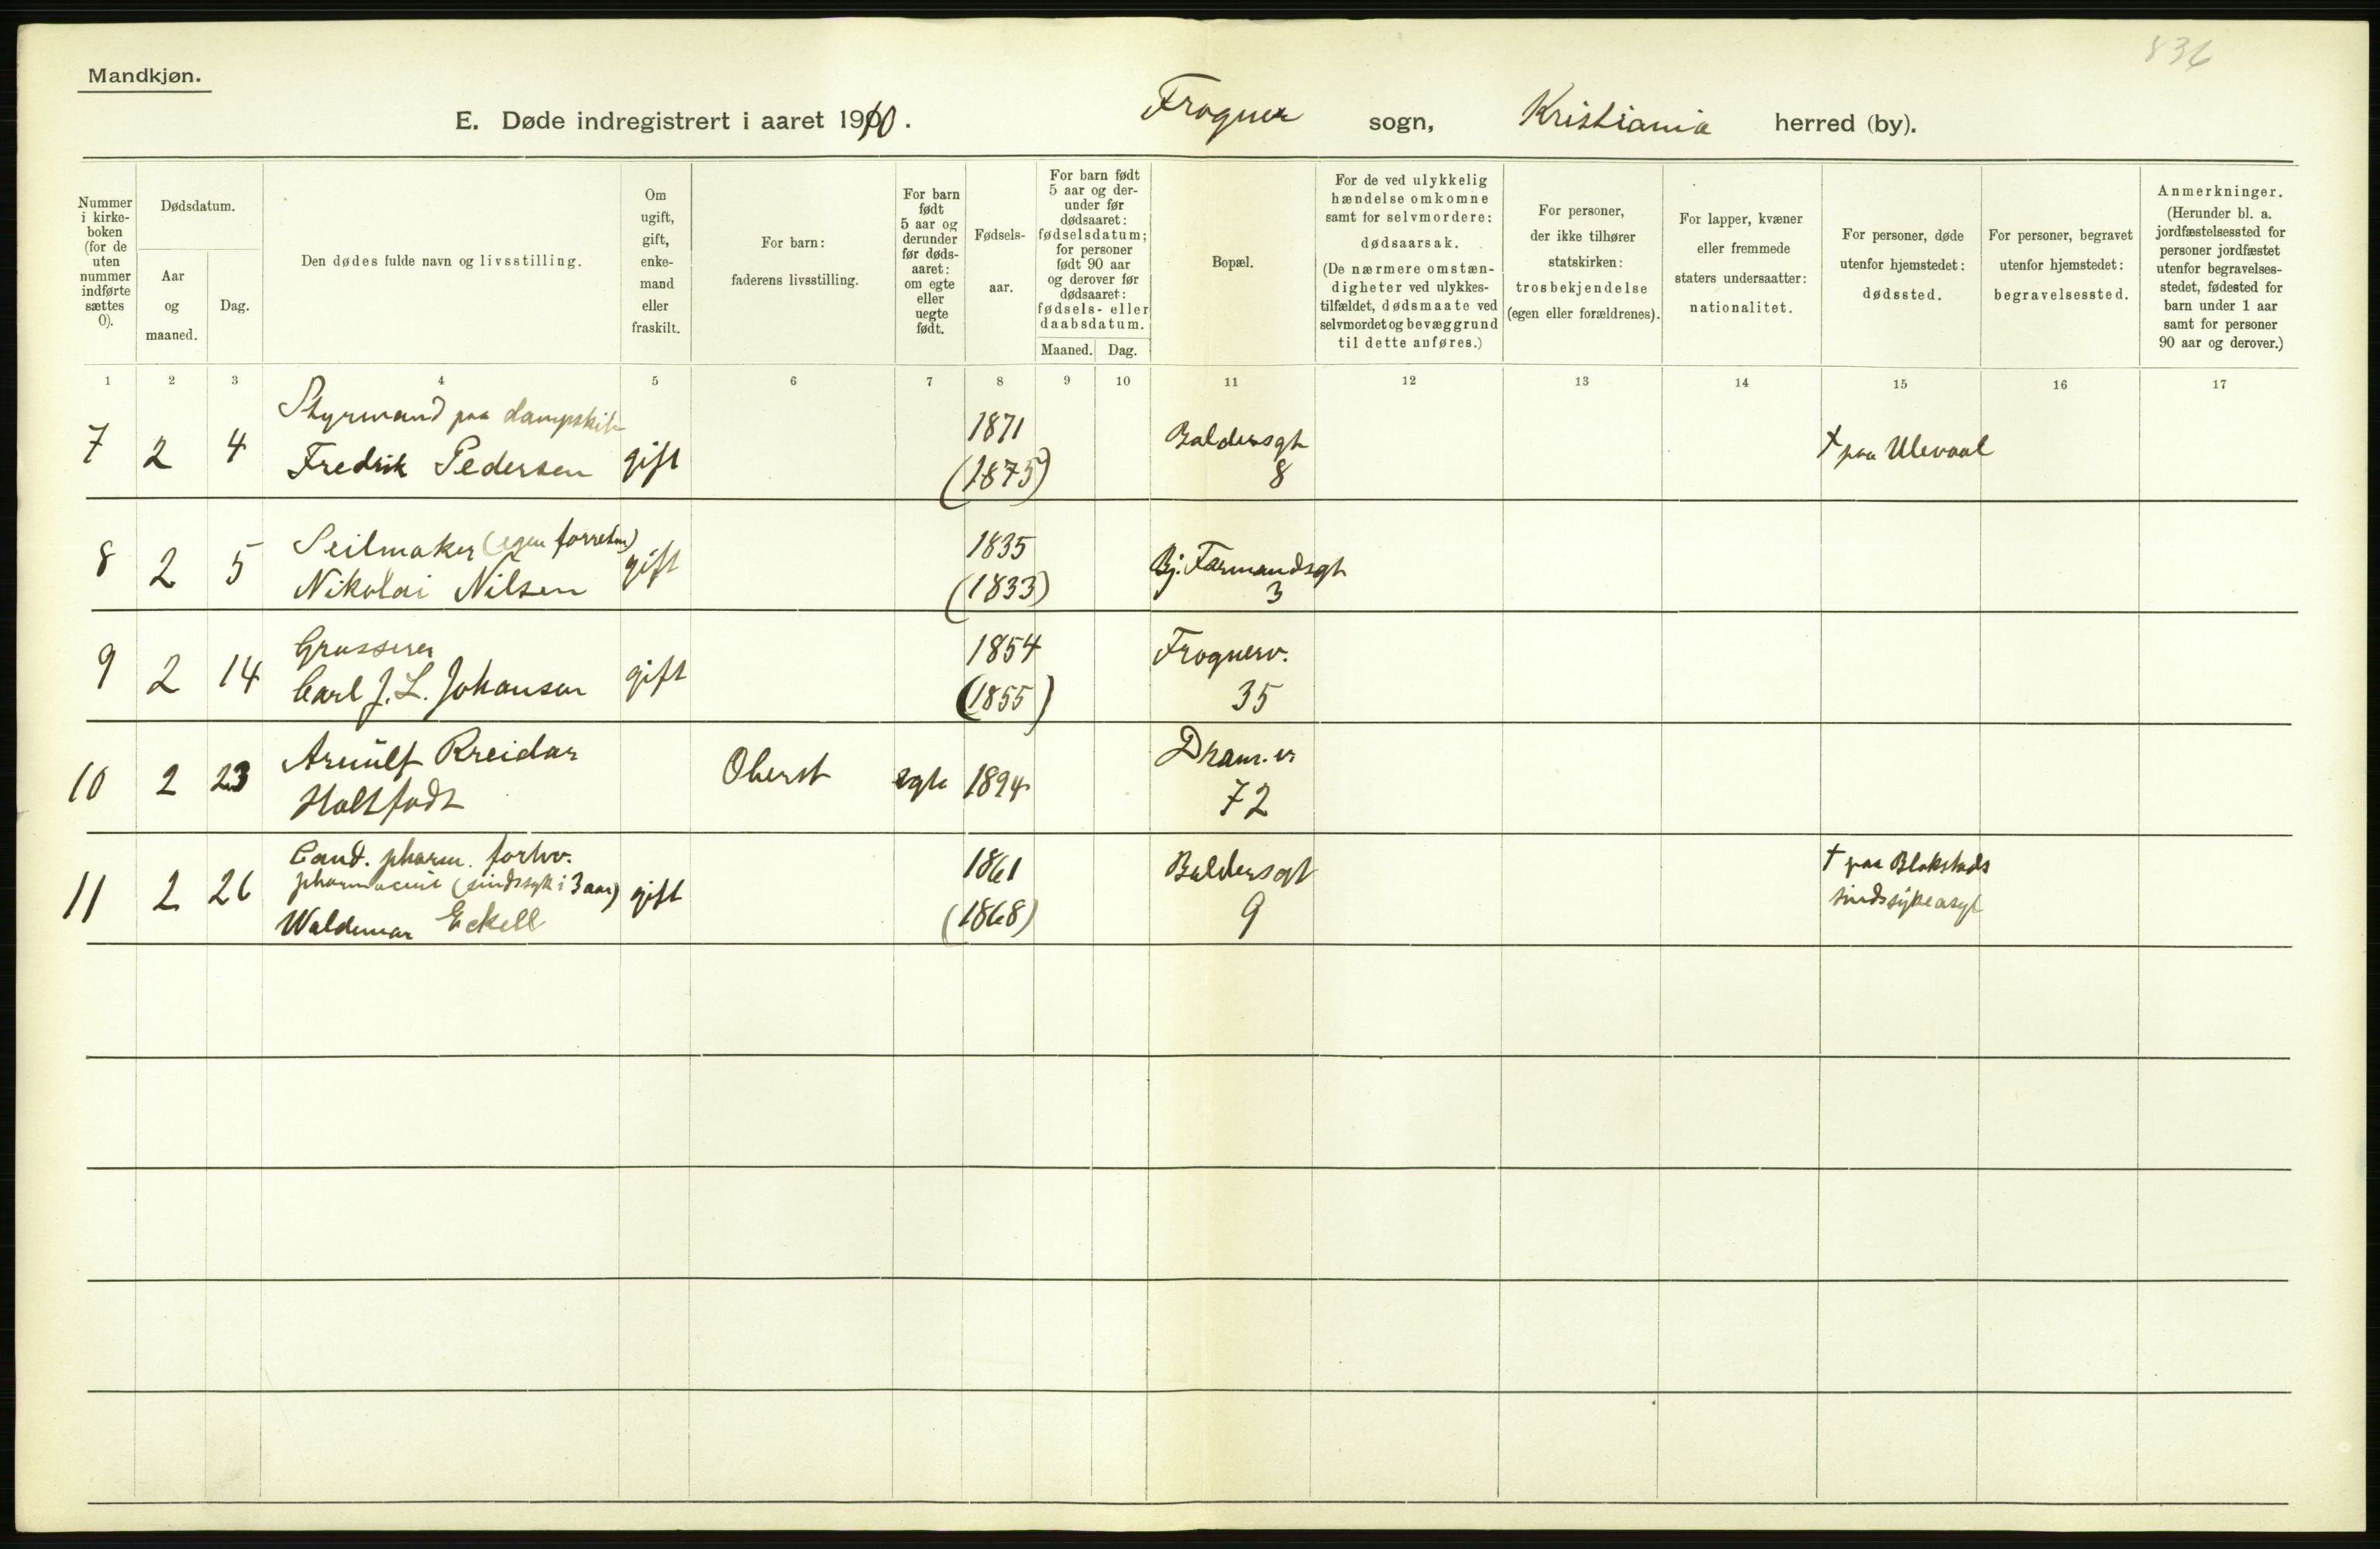 836
Mandkjøn.
E. Døde indregistrert i aaret 1910. Frogner sogn, Kristiania herred (by).
Nummer i kirke- boken (for de uten nummer indførte sættes 0).
Dødsdatum.
Aar og maaned.
Dag.
Den dødes fulde navn og livsstilling.
Om ugift, gift, enke- mand eller fraskilt.
For barn: faderens livsstilling.
For barn født 5 aar og derunder før døds- aaret: om egte eller uegte født.
Fødsels- aar.
For barn født 5 aar og der- under før dødsaaret: fødselsdatum; for personer født 90 aar og derover før dødsaaret: fødsels- eller daabsdatum.
Maaned. Dag.
Bopæl.
For de ved ulykkelig hændelse omkomne samt for selvmordere: dødsaarsak. (De nærmere omstæn- digheter ved ulykkes- tilfældet, dødsmaate ved selvmordet og bevæggrund til dette anføres.)
For personer, der ikke tilhører statskirken: trosbekjendelse (egen eller forældrenes).
For lapper, kvæner eller fremmede staters undersaatter: nationalitet.
For personer, døde utenfor hjemstedet: dødssted.
For personer, begravet utenfor hjemstedet: begravelsessted.
Anmerkninger. (Herunder bl. a. jordfæstelsessted for personer jordfæstet utenfor begravelses- stedet, fødested for barn under 1 aar samt for personer 90 aar og derover.)
1 2 3 4 5 6 7 8 9 10 11 12 13 14 15 16 17
Styrmand paa dampskib
7 2 4 Fredrik Pedersen gift 1871 (1875) Baldersgt 8 † paa Ulevaal
Seilmaker (egen forretn)
8 2 5 Nikolai Nilsen gift 1835 (1833) Bj. Farmandsgt 3
Grosserer
9 2 14 Carl J. L. Johansen gift 1854 (1855) Frognerv. 35
Arnulf Rreidar
10 2 23 Holtfodt Oberst egte 1894 Dram.v 72
Cand. pharm. forhv.
pharmaceut (sindssyk i 3 aar)
11 2 26 Waldemar Eckell gift 1861 (1868) Baldersgt 9 † paa Blakstads
sindssykeasyl